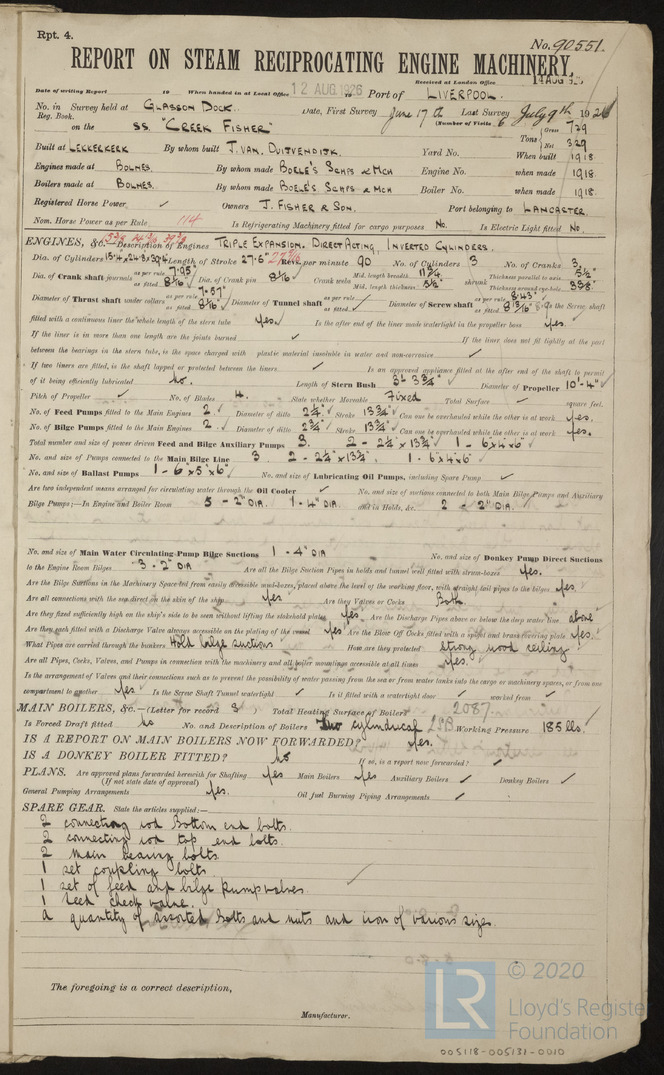 Rpt. 4.
No. 90551.
REPORT ON STEAM RECIPROCATING ENGINE MACHINERY.
Received at London Office 14 AUG
Date of writing Report 19 When handed in at Local Office 12 AUG. 1926 Port of LIVERPOOL.
No. in Survey held at GLASSON DOCK. Date, First Survey June 17th Last Survey July 9th 1926
Reg. Book. (Number of Visits 6
on the SS. "CREEK FISHER" Tons Gross 729 Net 329
Built at LEKKERKERK By whom built J. VAN. DUIJVENDIJK. Yard No. When built 1918
Engines made at BOLNES. By whom made BOELE'S SCHPS & MCH Engine No. when made 1918.
Boilers made at BOLNES. By whom made BOELE'S SCHPS & MCH Boiler No. when made 1918.
Registered Horse Power ✓ Owners J. FISHER & SON. Port belonging to LANCASTER.
Nom. Horse Power as per Rule 114 Is Refrigerating Machinery fitted for cargo purposes No. Is Electric Light fitted No.
ENGINES, &c.—Description of Engines TRIPLE EXPANSION. DIRECT ACTING, INVERTED CYLINDERS.
Dia. of Cylinders Length of Stroke 27.6" Revs. per minute 90 No. of Cylinders 3 No. of Cranks 3
Dia. of Crank shaft journals as per rule 7.95" as fitted 8 1/16" Dia. of Crank pin 8 1/16" Crank webs Mid. length breadth 11 3/4 Mid. length thickness 5 1/8" shrunk Thickness parallel to axis 5 1/8" Thickness around eyehole 3 3/8"
Diameter of Thrust shaft under collars as per rule 7.57" as fitted 8 1/16" Diameter of Tunnel shaft as per rule as fitted ✓ Diameter of Screw shaft as per rule 8.43" as fitted Is the Screw shaft
fitted with a continuous liner the whole length of the stern tube yes. Is the after end of the liner made watertight in the propeller boss yes.
If the liner is in more than one length are the joints burned ✓ If the liner does not fit tightly at the part
between the bearings in the stern tube, is the space charged with plastic material insoluble in water and non-corrosive ✓
If two liners are fitted, is the shaft lapped or protected between the liners ✓ Is an approved appliance fitted at the after end of the shaft to permit
of it being efficiently lubricated no. Length of Stern Bush 3' 3 3/4" Diameter of Propeller 10'-4"
Pitch of Propeller ✓ No. of Blades 4. State whether Moveable Fixed Total Surface ✓ square feet.
No. of Feed Pumps fitted to the Main Engines 2. Diameter of ditto 2 3/4" Stroke 13 3/4" Can one be overhauled while the other is at work yes.
No. of Bilge Pumps fitted to the Main Engines 2. Diameter of ditto 2 3/4" Stroke 13 3/4" Can one be overhauled while the other is at work yes.
Total number and size of power driven Feed and Bilge Auxiliary Pumps 3. 2 - 2 3/4" x 13 3/4" 1 - 6"x4"x6"
No. and size of Pumps connected to the Main Bilge Line 3. 2 - 2 3/4" x 13 3/4". 1 - 6"x4"x6"
No. and size of Ballast Pumps 1 - 6"x5"x6" No. and size of Lubricating Oil Pumps, including Spare Pump ✓
Are two independent means arranged for circulating water through the Oil Cooler ✓ No. and size of suctions connected to both Main Bilge Pumps and Auxiliary
Bilge Pumps;—In Engine and Boiler Room 5 - 2" DIA. 1 - 4" DIA. and in Holds, &c. 2 - 2" DIA.
No. and size of Main Water Circulating Pump Bilge Suctions 1 - 4" DIA No. and size of Donkey Pump Direct Suctions
to the Engine Room Bilges 3 - 2" DIA Are all the Bilge Suction Pipes in holds and tunnel well fitted with strum-boxes yes.
Are the Bilge Suctions in the Machinery Space led from easily accessible mud-boxes, placed above the level of the working floor, with straight tail pipes to the bilges yes.
Are all connections with the sea direct on the skin of the ship yes Are they Valves or Cocks Both.
Are they fixed sufficiently high on the ship's side to be seen without lifting the stokehold plates yes Are the Discharge Pipes above or below the deep water line above
Are they each fitted with a Discharge Valve always accessible on the plating of the vessel yes Are the Blow Off Cocks fitted with a spigot and brass covering plate yes.
What Pipes are carried through the bunkers Hold bilge suctions How are they protected strong wood ceiling
Are all Pipes, Cocks, Valves, and Pumps in connection with the machinery and all boiler mountings accessible at all times yes.
Is the arrangement of Valves and their connections such as to prevent the possibility of water passing from the sea or from water tanks into the cargo or machinery spaces, or from one
compartment to another yes Is the Screw Shaft Tunnel watertight ✓ Is it fitted with a watertight door ✓ worked from ✓
MAIN BOILERS, &c.—(Letter for record S) Total Heating Surface of Boilers 2087
Is Forced Draft fitted no No. and Description of Boilers Two cylindrical 2SB Working Pressure 185 lbs.
IS A REPORT ON MAIN BOILERS NOW FORWARDED? yes.
IS A DONKEY BOILER FITTED? No If so, is a report now forwarded? ✓
PLANS. Are approved plans forwarded herewith for Shafting yes Main Boilers yes Auxiliary Boilers ✓ Donkey Boilers ✓
(If not state date of approval)
General Pumping Arrangements yes. Oil fuel Burning Piping Arrangements ✓
SPARE GEAR. State the articles supplied:—
2 connecting rod Bottom end bolts.
2 connecting rod top end bolts.
2 main bearing bolts
1 set coupling bolts
1 set of feed and bilge pump valves
1 feed check valve.
a quantity of assorted bolts and nuts and iron of various sizes.
The foregoing is a correct description,
Manufacturer.
LR © 2020
Lloyd's Register
Foundation
005118-005131-0010